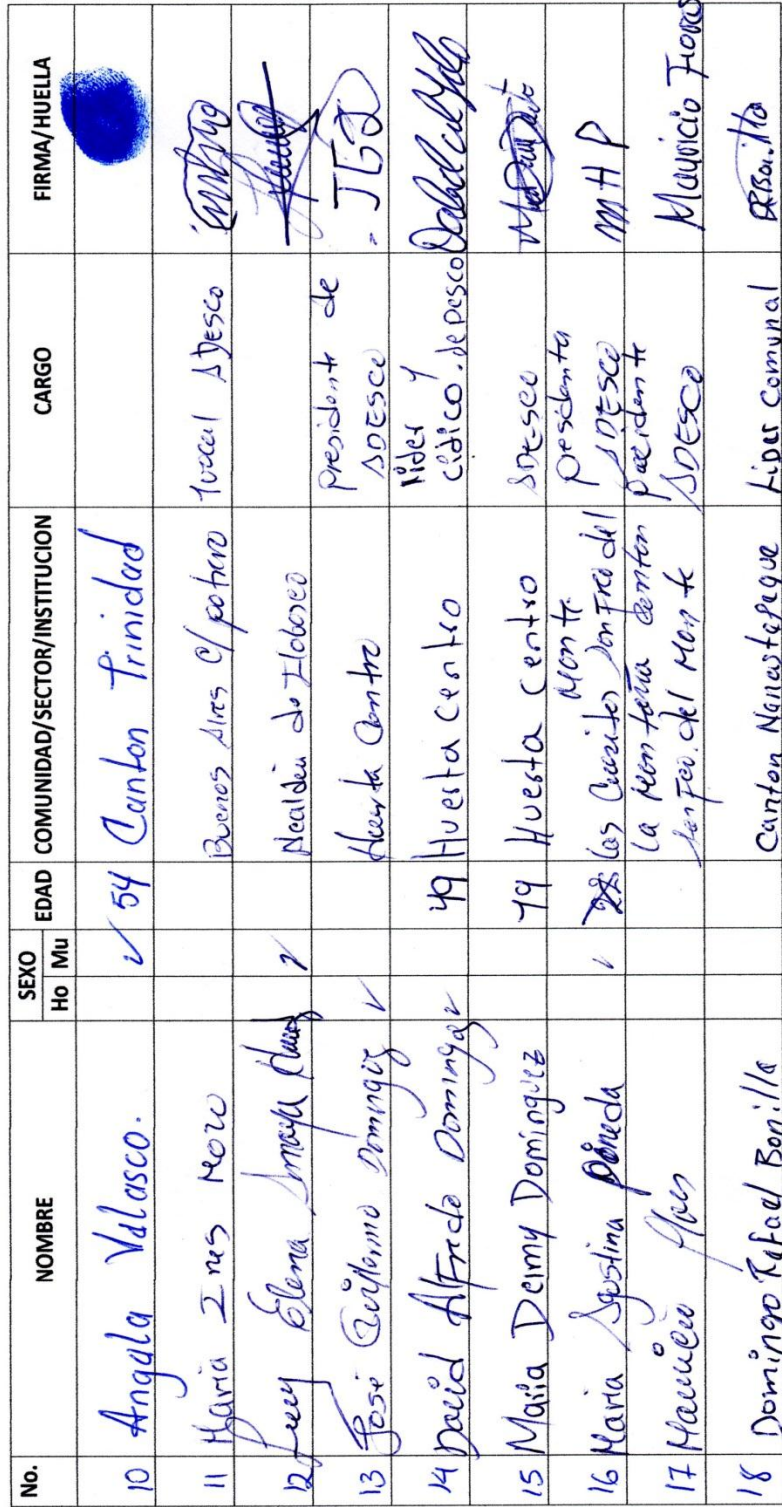 No. NOMBRE SEXO EDAD COMUNIDAD/SECTOR/INSTITUCION CARGO FIRMA/HUELLA
Ho Mu
10 Angela Velasco. ✓ 54 Canton Trinidad
11 Maria Ines Buenos Aires C/ potrero ADESCO
12 Elena Amaya ✓ Alcaldia de Ilobasco
13 José Guillermo ✓ Huerta Centro presidente de ADESCO JGD
14 David Alfredo ✓ 49 Huerta centro lider y cidico. de DESCO
15 Maria Deimy Dominguez 79 Huerta centro ADESCO
16 Maria Agustina Pineda ✓ San Fco del Monte presidenta ADESCO MHP
17 Mauricio La Montaña Canton San Fco. del Monte ADESCO Mauricio Flores
18 Domingo Rafael Bonilla Canton Nanastepeque Lider Comunal